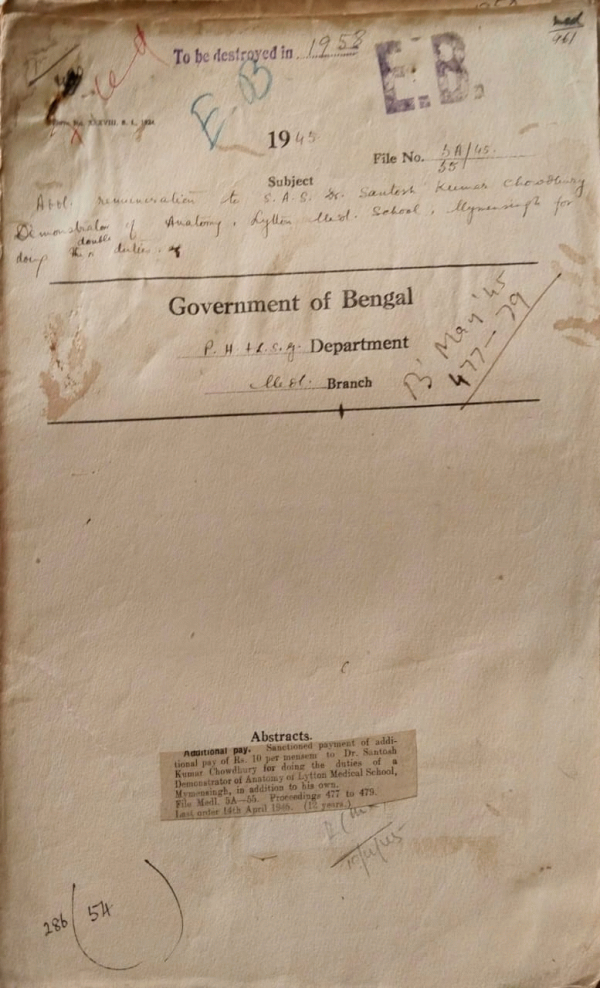 To be destroyed in 1958
E.B.
E.B
1945
File No. 5A/45.
55
Subject
Addl. remuneration to S.A.S. Dr. Santosh Kumar Chowdhury
Demonstrator of Anatomy, Lytton Med. School, Mymensingh for
doing double duties.
Government of Bengal
P. H. & L. S. G. Department
Medl. Branch
B May '45
477—79
Abstracts.
Additional pay. Sanctioned payment of addi-
tional pay of Rs. 10 per mensem to Dr. Santosh
Kumar Chowdhury for doing the duties of a
Demonstrator of Anatomy of Lytton Medical School,
Mymensingh, in addition to his own.
File Medl. 5A—55. Proceedings 477 to 479.
Last order 14th April 1945. (12 years.)
286 (54)